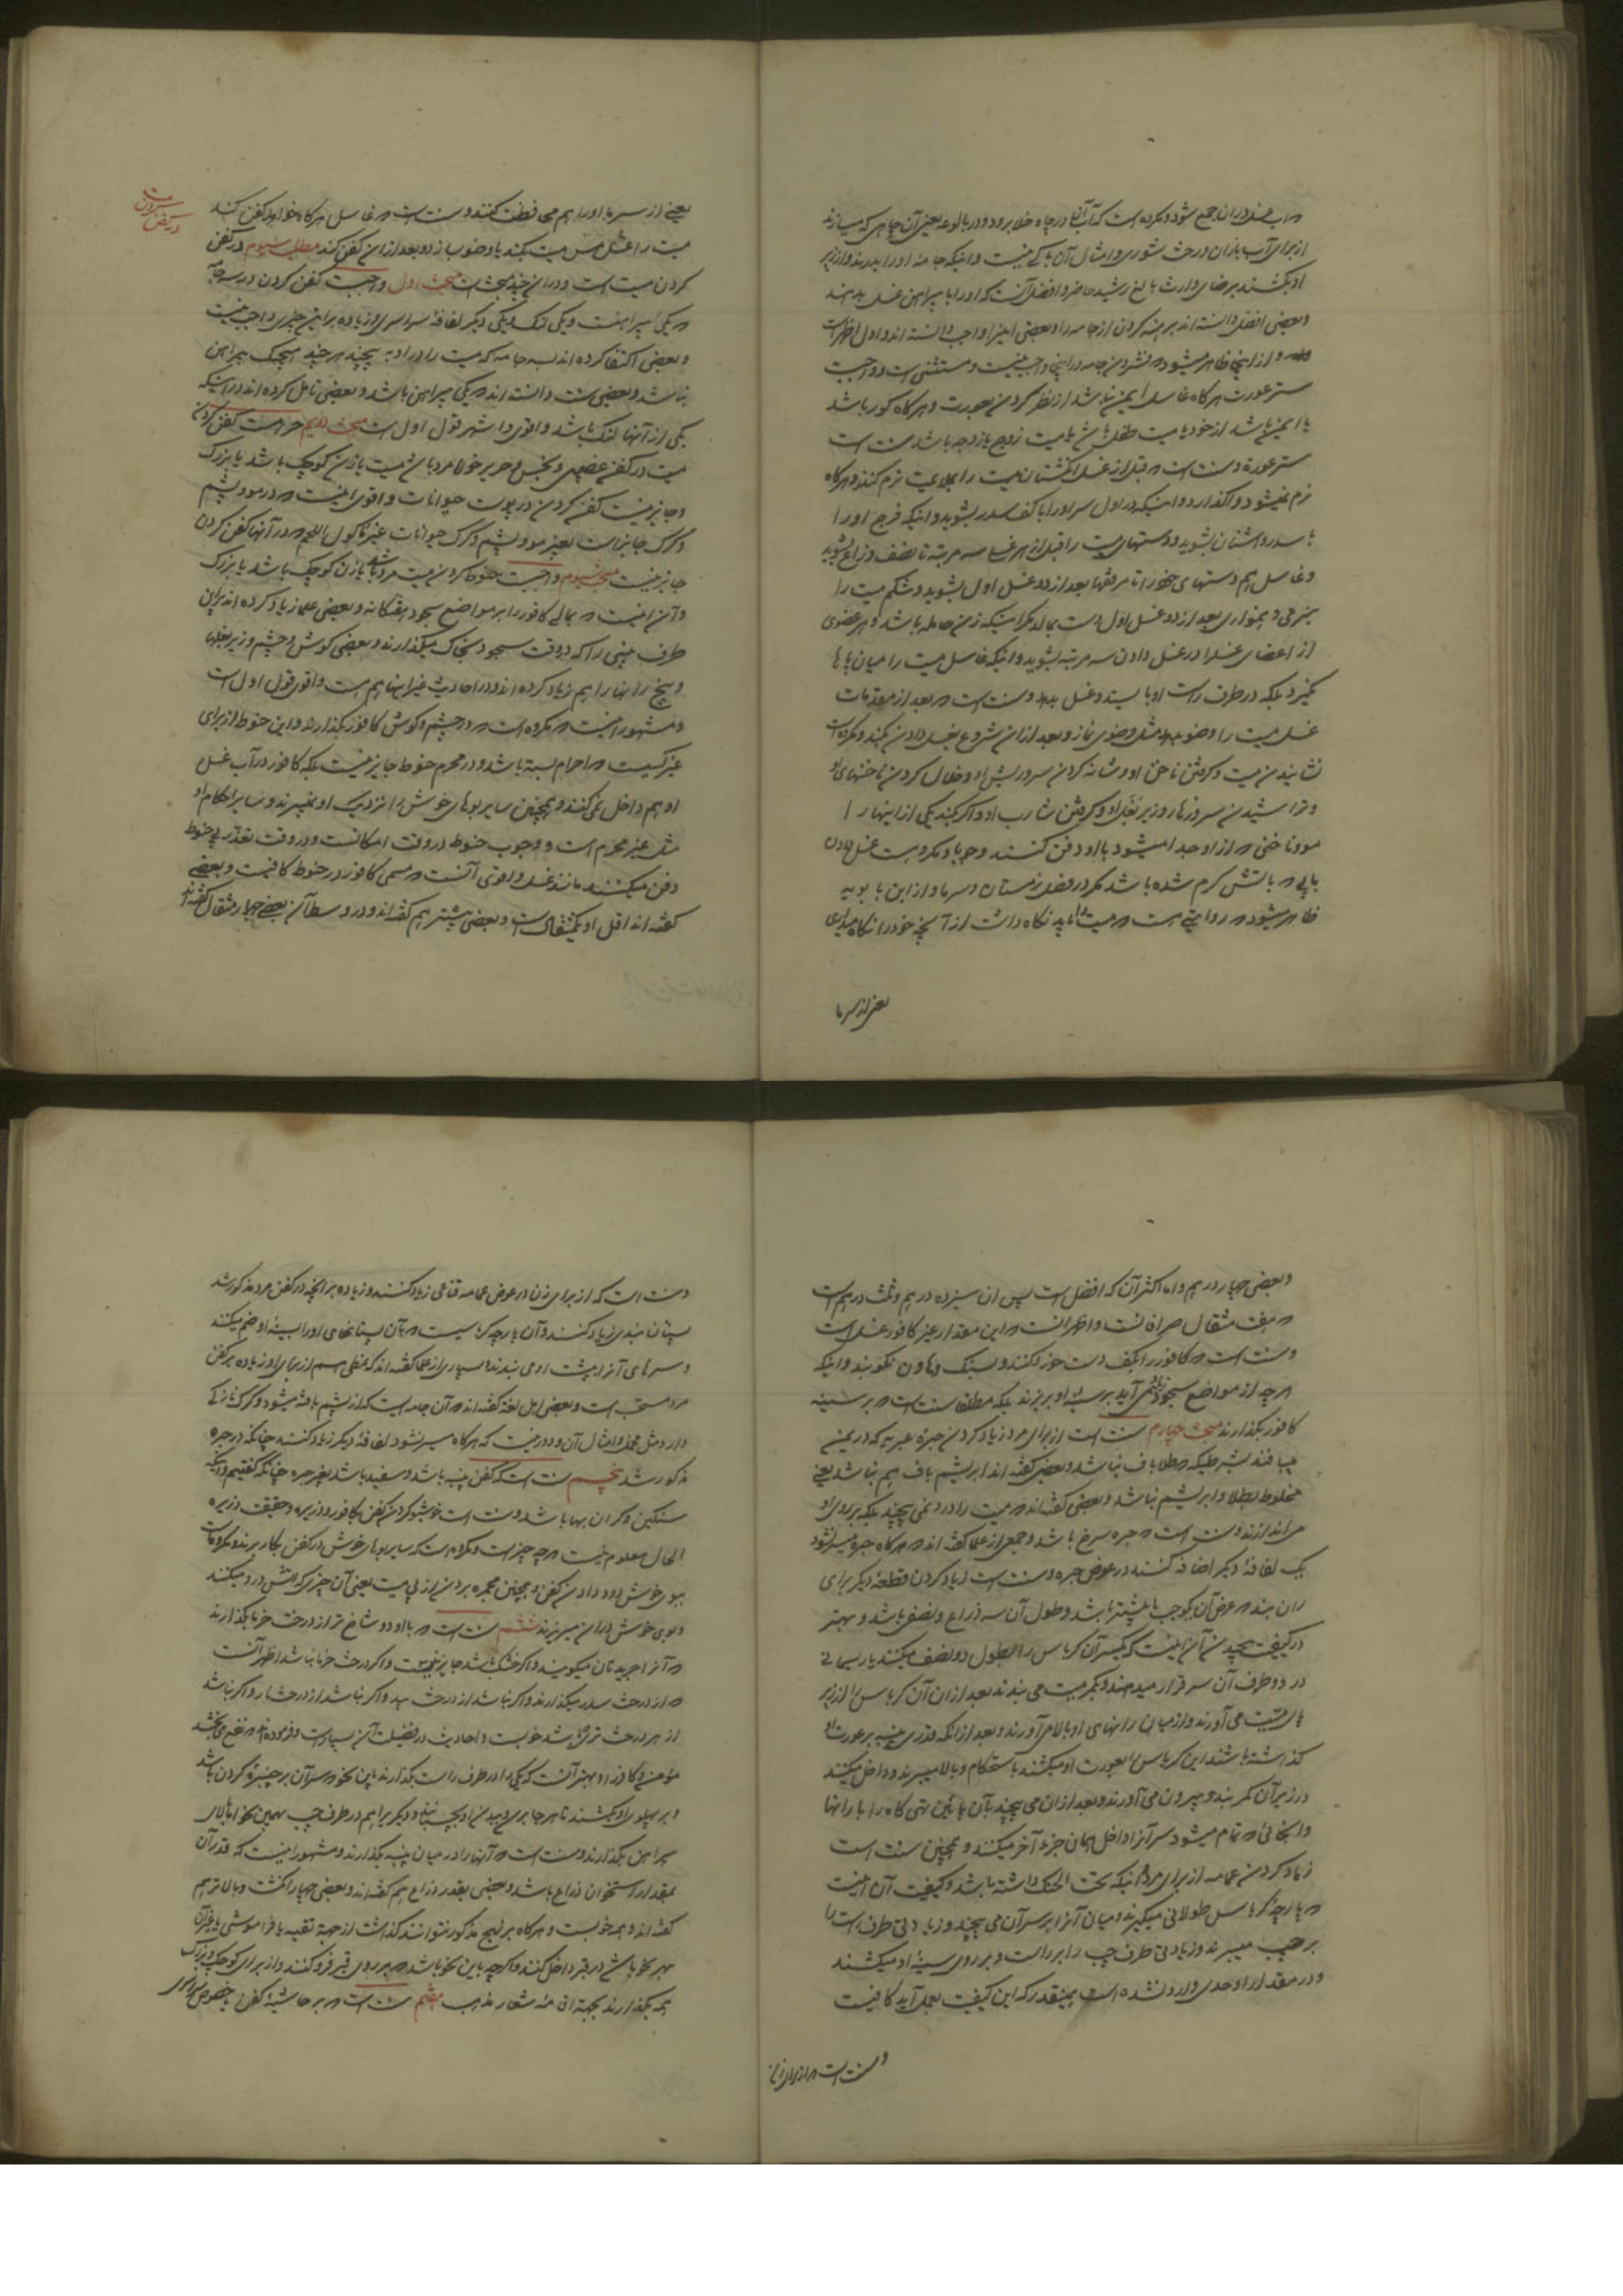 که آب غسل در ان جمع شود و مکروه است که آب آنها در چاه خلا برود و در بالوعه یعنی آن چاهی که میسازند
از برای آب باران و رخت شوری و امثال آن باکی نیست و اینکه جامهٔ او را بدرند و از زیر
او بکشند برضای وارث بالغ رشید حاضر و افضل آنست که او را با پیراهن غسل بدهند
و بعضی افضل دانسته اند برهنه کردن از جامه را و بعضی اینرا واجب دانسته اند و اول اظهر است
و از اینجا ظاهر میشود که فشردن جامه در اینجا واجب نیست و مستثنی است و واجبست
ستر عورت هرگاه غاسل ایمن نباشد از نظر کردن بعورت و هرگاه کور باشد
یا ایمن باشد از خود یا میت طفل باشد یا میت زوج یا زوجه باشد سنت است
ستر عورة و سنت است که قبل از غسل انگشتان میت را بملایمت نرم کنند و هرگاه
نرم نمیشود واگذارد و اینکه در اول سر او را با کف سدر بشوید و اینکه فرج او را
با سدر و اشنان بشوید و دستهای میت را قبل از هر غسل سه مرتبه تا نصف ذراع بشوید
و غاسل هم دستهای خود را تا مرفقها بعد از دو غسل اول بشوید و شکم میت را
بنرمی و همواری بعد از دو غسل اول دست بمالد مگر اینکه زن حامله باشد و هر عضوی
از اعضای غسل را در غسل دادن سه مرتبه بشوید و اینکه غاسل میت را میان پاها
نگیرد بلکه در طرف راست او بایستد و غسل بدهد و سنت است که بعد از مقدمات
غسل میت را وضو بدهد مثل وضوی نماز و بعد از ان شروع بغسل دادن بکند و مکروه است
نشانیدن میت و گرفتن ناخن او و شانه کردن سر و ریش او و خلال کردن ناخنهای او
و تراشیدن سر و زهار و زیر بغل او و گرفتن شارب او و اگر بکند یکی از اینها را
مو و ناخنی که از او جدا میشود با او دفن کنند وجوبا و مکروهست غسل دادن
بآبی که باتش گرم شده باشد مگر در فصل زمستان و سرما و از ابن بابویه
ظاهر میشود که روایتی هست که میت را باید نگاه داشت از آنچه خود را نگاه میداری
یعنی از سرما
یعنی از سرما او را هم محافظت کنند و سنت است که غاسل هرگاه خواهد کفن کند
میت را غسل مس میت بکند یا وضو بسازد و بعد از ان کفن کند مطلب سیوم در کفن
کردن میت است و در ان چند مبحث است مبحث اول واجبست کفن کردن در سه جامه
که یکی پیراهنست و یکی لنگ و یکی دیگر لفافهٔ سراسری و زیاده بر این چیزی واجب نیست
و بعضی اکتفا کرده اند بسه جامه که میت را در او بپیچند هر چند هیچیک پیراهن
نباشد و بعضی سنت دانسته اند که یکی پیراهن باشد و بعضی تامل کرده اند در اینکه
یکی از آنها لنگ باشد و اقوی و اشهر قول اول است مبحث دویم حرامست کفن کردن
میت در کفن غصبی و نجس و حریر خواه مرد باشد میت یا زن کوچک باشد یا بزرگ
و جایز نیست کفن کردن در پوست حیوانات و اقوی اینست که در مو و پشم
و کرک جایز است بغیر مو و پشم و کرک حیوانات غیر ماکول اللحم که در آنها کفن کردن
جایز نیست مبحث سیوم واجبست حنوط کردن میت مرد باشد یا زن کوچک باشد یا بزرگ
و آن اینست که بمالی کافور را بر مواضع سجود هفتگانه و بعضی علما زیاد کرده اند بر این
طرف بینی را که در وقت سجود بخاک میگذارند و بعضی گوش و چشم و زیر بغلها
و بیخ رانها را هم زیاد کرده اند و در احادیث غیر اینها هم هست و اقوی قول اول است
و مشهور اینست که مکروه است که در چشم و گوش کافور بگذارند و این حنوط از برای
غیر کسیست که احرام بسته باشد و در محرم حنوط جایز نیست بلکه کافور در آب غسل
او هم داخل نمی کنند و همچنین سایر بوهای خوش را نزدیک او نمیبرند و سایر احکام او
مثل غیر محرم است و وجوب حنوط در وقت امکانست و در وقت تعذر بی حنوط
دفن میکنند مانند غسل و اقوی آنست که مسمی کافور در حنوط کافیست و بعضی
گفته اند اقل او یکمثقال است و بعضی بیشتر هم گفته اند و در وسط آن بعضی چهار مثقال گفته اند
در کفن کردن میت
و بعضی چهار درهم و اما اکثر آن که افضل است پس ان سیزده درهم و ثلث درهم است
که هفت مثقال صرافانست و اظهر انست که این مقدار غیر کافور غسل است
و سنت است که کافور را بکف دست خورد کنند و بسنگ و هاون نکوبند و اینکه
هر چه از مواضع سجود زیاد می آید بر سینهٔ او بریزند بلکه مطلقا سنت است که بر سینه
کافور بگذارند مبحث چهارم سنت است از برای مرد زیاد کردن حبرهٔ عبریه که در یمن
میبافند بشرطیکه طلا باف نباشد و بعضی گفته اند ابریشم باف هم نباشد یعنی
مخلوط بطلا و ابریشم نباشد و بعضی گفته اند که میت را در او نمی پیچند بلکه بر روی او
می اندازند و سنت است که حبره سرخ باشد و جمعی از علما گفته اند که هرگاه حبره میسر نشود
یک لفافهٔ دیگر اضافه کنند در عوض حبره و سنت است زیاد کردن قطعهٔ دیگر برای
ران بند که عرض آن یکوجب یا بیشتر باشد و طول آن سه ذراع و نصف باشد و بهتر
در کیفیت پیچیدن آن اینست که یکسر آن کرباس را بطول دو نصف میکنند یا ریسمانی
در دو طرف آن سر قرار میدهند و بکمر میت می بندند بعد از ان آن کرباس را از زیر
پای میت می آورند و از میان رانهای او بالا می آورند و بعد از انکه قدری پنبه بر عورت او
گذاشته باشند این کرباس را بعورت او میکشند باستحکام و بالا میبرند و داخل میکنند
در زیر آن کمر بند و بیرون می آورند و بعد از ان می پیچند بآن پائین تهی گاه را با رانها
و انجائی که تمام میشود سر آنرا داخل همان جزء آخر میکنند و همچنین سنت است
زیاد کردن عمامه از برای مرد و اینکه تحت الحنک داشته باشد و کیفیت آن اینست
که پارچه کرباس طولانی میگیرند و میان آنرا بر سر آن می پیچند و زیادتی طرف راست را
بر چپ میبرند و زیادتی طرف چپ را بر راست و بر روی سینهٔ او میکشند
و در مقدار او حدی وارد نشده است بهمینقدر که این کیفیت بعمل آید کافیست
و سنت است که از برای زن
و سنت است که از برای زن در عوض عمامه قناعی زیاد کنند و زیاده بر آنچه در کفن مرد مذکور شد
پستان بندی زیاد کنند و آن پارچه کرباسیست که بآن پستانهای او را بسینهٔ او ضم میکنند
و سرهای آنرا بپشت او می بندند و بسیاری از علما گفته اند که نمطی هم از برای او زیاده بر کفن
مرد مستحب است و بعضی اهل لغة گفته اند که آن جامه ایست که از پشم بافته میشود و کرک
دارد مثل مخمل و امثال آن و دور نیست که هرگاه میسر نشود لفافهٔ دیگر زیاد کنند چنانکه در حبره
مذکور شد پنجم سنت است که کفن پنبه باشد و سفید باشد بغیر حبره چنانکه گفتیم و اینکه
سنگین و گران بها باشد و سنت است خوشبو کردن کفن بکافور و ذریره و حقیقت ذریره
الحال معلوم نیست که چه چیز است و مکروه است که سایر بوهای خوش در کفن بکار برند و مکروهست
ببوی خوش دود دادن کفن و همچنین مجمره بردن از پی میت یعنی آن چیزی که آتش در او میکنند
و بوی خوش در ان میریزند ششم سنت است که با او دو شاخ تر از درخت خرما بگذارند
که آنرا جریدتان میگویند و اگر خشک باشد جایز نیست و اگر درخت خرما نباشد اظهر آنست
که از درخت سدر میگذارند و اگر نباشد از درخت بید و اگر نباشد از درخت انار و اگر نباشد
از هر درخت تری باشد خوبست و احادیث در فضیلت آن بسیار است و فرموده اند که نفع می بخشد
مؤمن و کافر را و بهتر آنست که یکی را در طرف راست بگذارند باین نحو که سر آن بر چنبرهٔ گردن باشد
و بر پهلوی او بکشند تا هر جا برسد و ببدن او بچسبانند و دیگر یرا هم در طرف چپ بهمین نحو اما بالای
پیراهن بگذارند و سنت است که آنها را در میان پنبه بگذارند و مشهور اینست که قدر آن
بمقدار استخوان ذراع باشد و بعضی بقدر ذراع هم گفته اند و بعضی چهار انگشت و بالاتر هم
گفته اند و همه خوبست و هرگاه بر نهج مذکور نتوانند گذاشت از جهة تقیه یا فراموشی یا غیر آن
بهر نحو باشد در قبر داخل کنند و اگر چه باین نحو باشد که بر روی قبر فرو کنند و از برای کوچک و بزرگ
همه بگذارند بجهة اقامهٔ شعار مذهب هفتم سنت است که بر حاشیهٔ کفن بخصوص